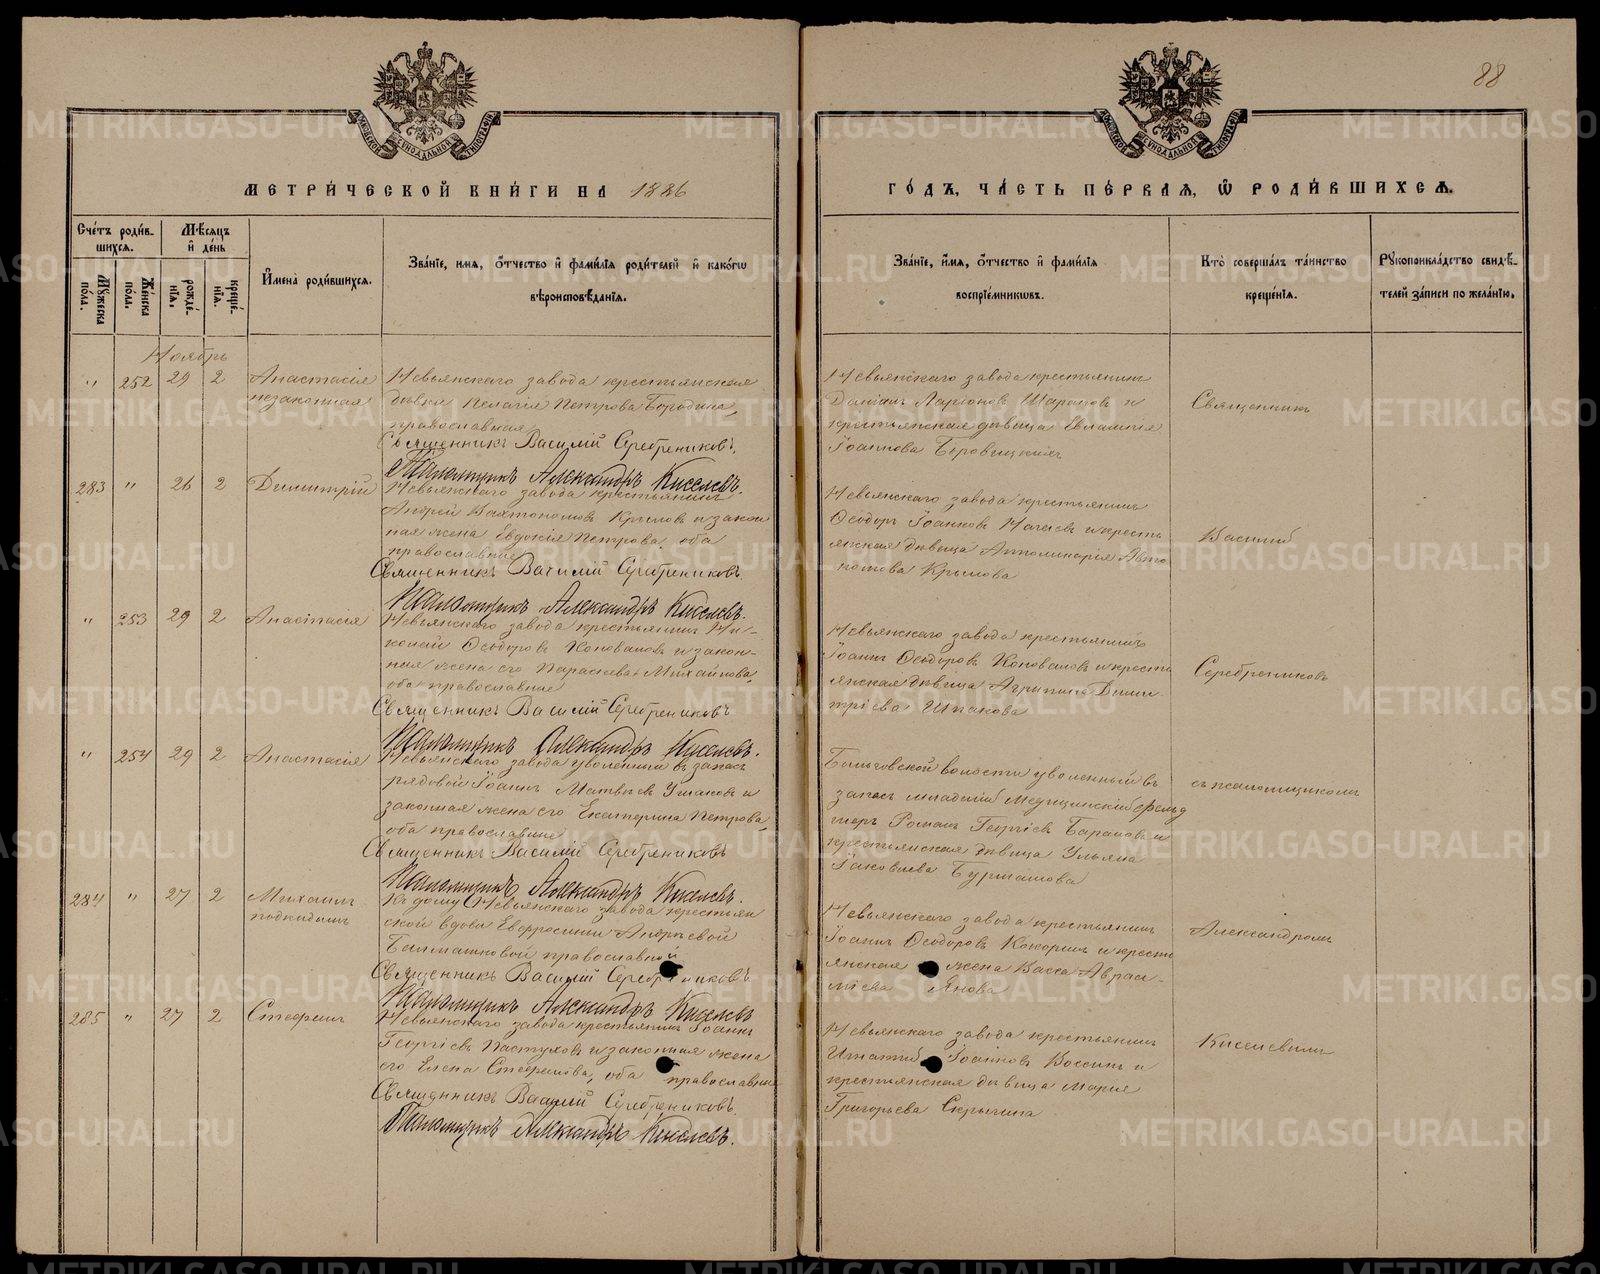 88
МЕТРИ́ЧЕСКОЙ КНИ́ГИ НА 1886
ГО́ДЪ, ЧА́СТЬ ПЕ́РВАЯ, Ѡ РОДИ́ВШИХСЯ.
Сче́тъ роди́в-
шихся.
Му́жеска по́ла.
Же́нска по́ла.
Мѣ́сяцъ и де́нь
рожде́-
нїя.
креще́-
нїя.
И́мена роди́вшихся.
Зва́нїе, имя, о́тчество и фами́лїя роди́телей и како́гѡ
вѣроисповѣ́данїя.
Зва́нїе, и́мя, о́тчество и фами́лїя
воспрїе́мникѡвъ.
Кто̀ соверша́лъ та́инство
креще́нїя.
Рꙋкоприкла́дство свидѣ́-
телей за́писи по жела́нїю.
Ноябрь
" 252 29 2
Анастасія
незаконная
Невьянскаго завода крестьянская
дѣвка Пелагія Петрова Бородина,
православная
Священникъ Василій Серебрениковъ.
Псаломщикъ Александръ Киселевъ.
Невьянскаго завода крестьянинъ
Даміанъ Ларіоновъ Шараповъ и
крестьянская дѣвица Евлампія
Іоаннова Боровицкихъ
Священникъ
283 " 26 2
Димитрій
Невьянскаго завода крестьянинъ
Андрей Вахтономовъ Крыловъ и закон
ная жена Евдокія Петрова, оба
православные
Священникъ Василій Серебрениковъ.
Псаломщикъ Александръ Киселевъ.
Невьянскаго завода крестьянинъ
Ѳеодоръ Іоанновъ Мачевъ и кресть
янская дѣвица Апполинарія Авто
номова Крылова
Василій
" 253 29 2
Анастасія
Невьянскаго завода крестьянинъ Ни-
колай Ѳеодоровъ Коноваловъ и закон-
ная жена его Параскева Михайлова,
оба православные
Священникъ Василій Серебрениковъ
Псаломщикъ Александръ Киселевъ.
Невьянскаго завода крестьянинъ
Іоаннъ Ѳеодоровъ Коноваловъ и кресть
янская дѣвица Агрипина Дими
тріева Шпакова
Серебрениковъ
" 254 29 2
Анастасія
Невьянскаго завода уволенный въ запасъ
рядовой Іоаннъ Матвѣевъ Ушаковъ и
законная жена его Екатерина Петрова,
оба православные
Священникъ Василій Серебрениковъ
Псаломщикъ Александръ Киселевъ.
волости уволенный въ
запасъ младшій Медицинскій фельд
шеръ Романъ Георгіевъ Барановъ и
крестьянская дѣвица Ульяна
Іаковлева Бурмашова
съ псаломщикомъ
284 " 27 2
Михаилъ
подкидышъ
Къ дому Невьянскаго завода крестьян
ской вдовы Евфросиніи Андреевой
Балмашковой православной
Священникъ Василій Серебрениковъ.
Псаломщикъ Александръ Киселевъ
Невьянскаго завода крестьянинъ
Іоаннъ Ѳеодоровъ Кокоринъ и кресть
янская жена Васса Авраа-
міева Янова
Александромъ
285 " 27 2
Стефанъ
Невьянскаго завода крестьянинъ Іоаннъ
Георгіевъ Пастуховъ и законная жена
его Елена Стефанова, оба православные
Священникъ Василій Серебрениковъ.
Псаломщикъ Александръ Киселевъ.
Невьянскаго завода крестьянинъ
Игнатій Іоанновъ Вассинъ и
крестьянская дѣвица Марія
Григорьева Скрычина
Киселевымъ
METRIKI.GASO-URAL.RU